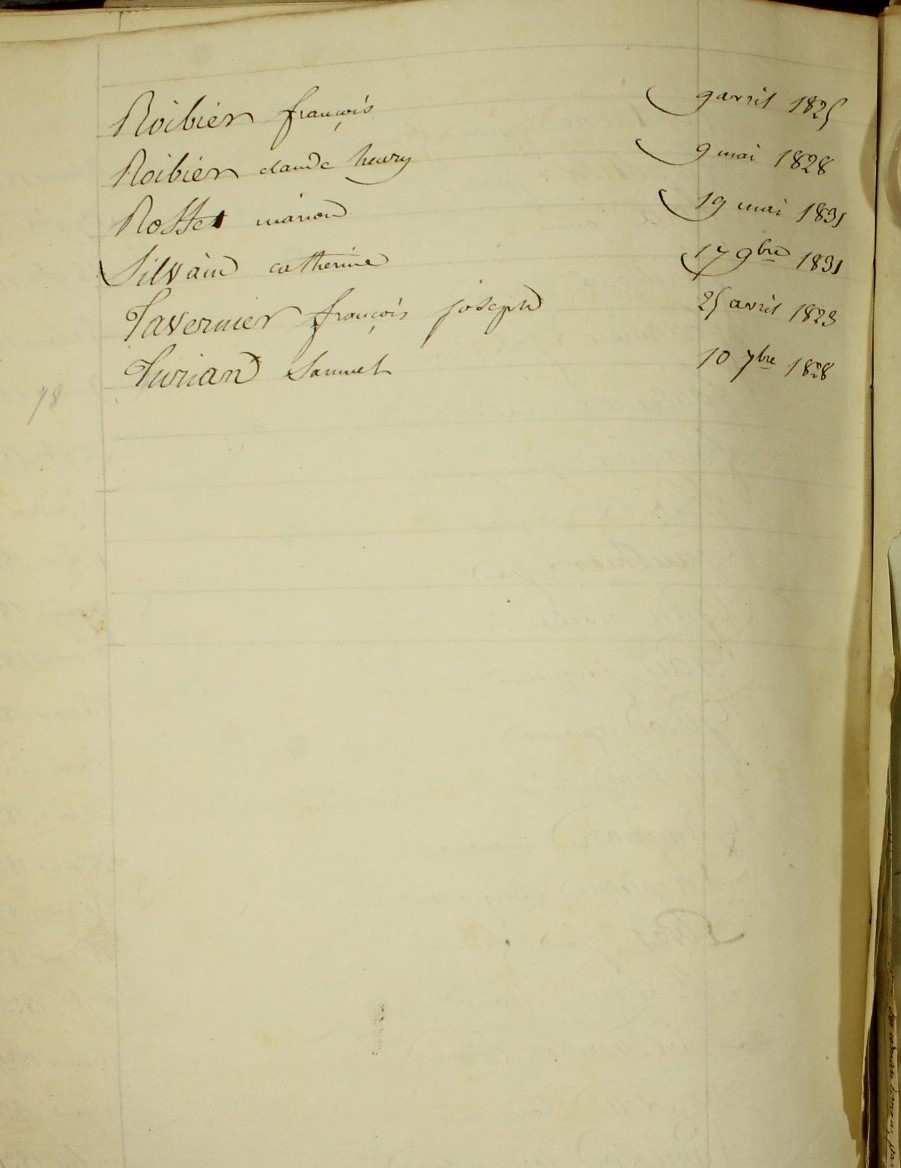 Roibier françois 9 avril 1825
Roibier claude henry 9 mai 1828
Rosset marion 19 mai 1831
Silvain catherine 17 9bre 1831
Tavernier françois joseph 25 avril 1823
Turian Samuel 10 7bre 1828
78